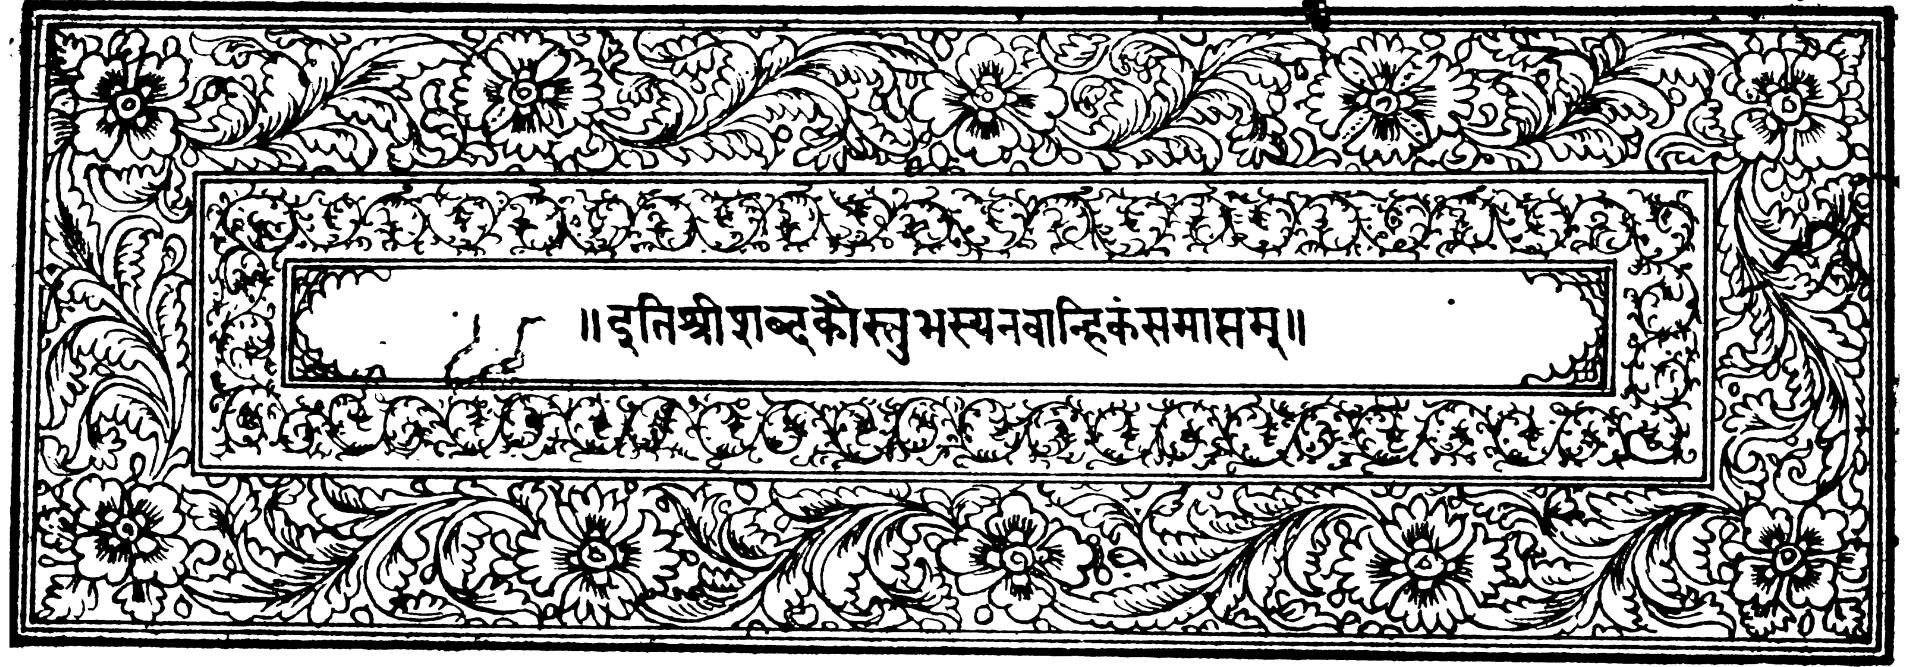 ॥ इति श्रीशब्दकौस्तुभस्य नवान्हिकं समाप्तम् ॥